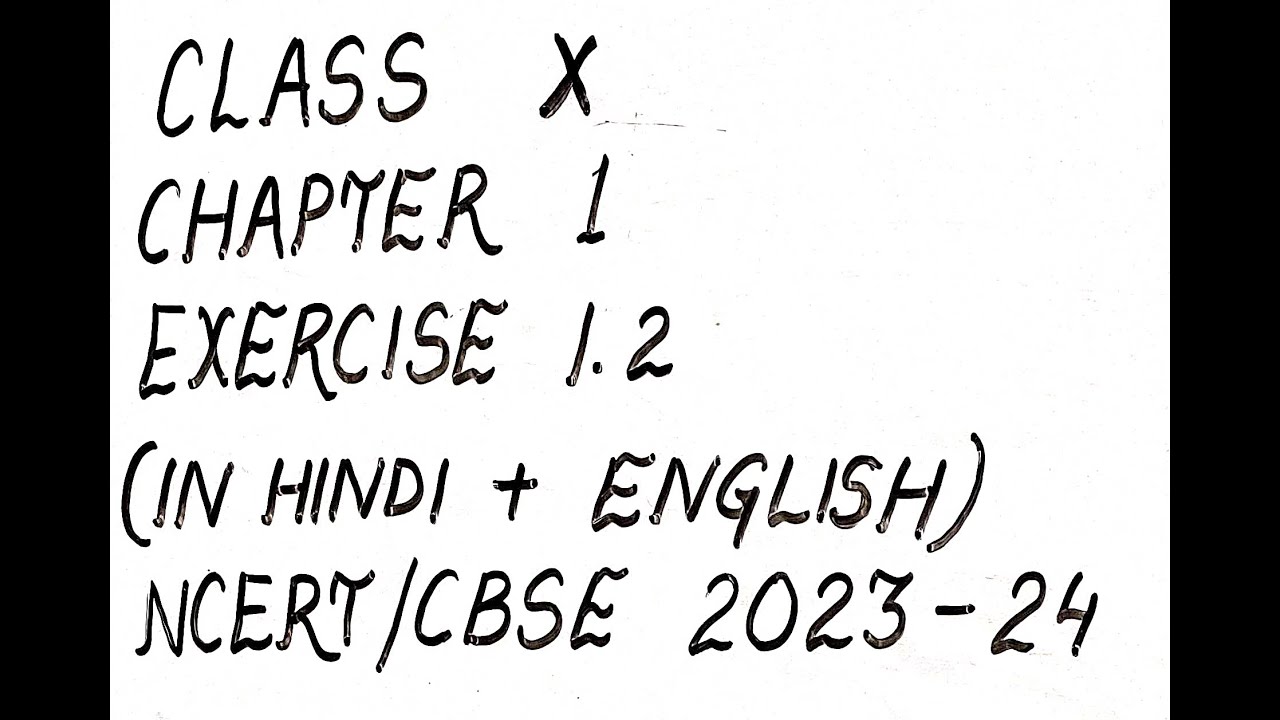 CLASS X
CHAPTER 1
EXERCISE 1.2
(IN HINDI + ENGLISH)
NCERT/CBSE 2023-24